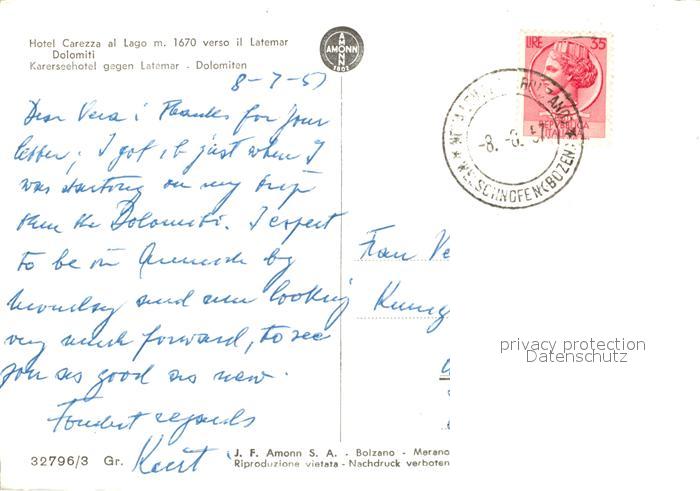 Hotel Carezza al Lago m. 1670 verso il Latemar
Dolomiti
Karerseehotel gegen Latemar - Dolomiten
AMONN
AMONN
1802
8-7-57
Dear Vera! Thanks for your
letter; I got it just when I
was starting on my trip
thru the Dolomiti. I expect
to be in by
monday and am looking
very much forward, to see
you as good as new.
Fondest regards
Kurt
32796/3 Gr.
J. F. Amonn S. A. - Bolzano - Merano
Riproduzione vietata - Nachdruck verboten
LIRE 35
REPUBBLICA
ITALIANA
-8. 57
WELSCHNOFEN (BOZEN)
Frau Ve
privacy protection
Datenschutz